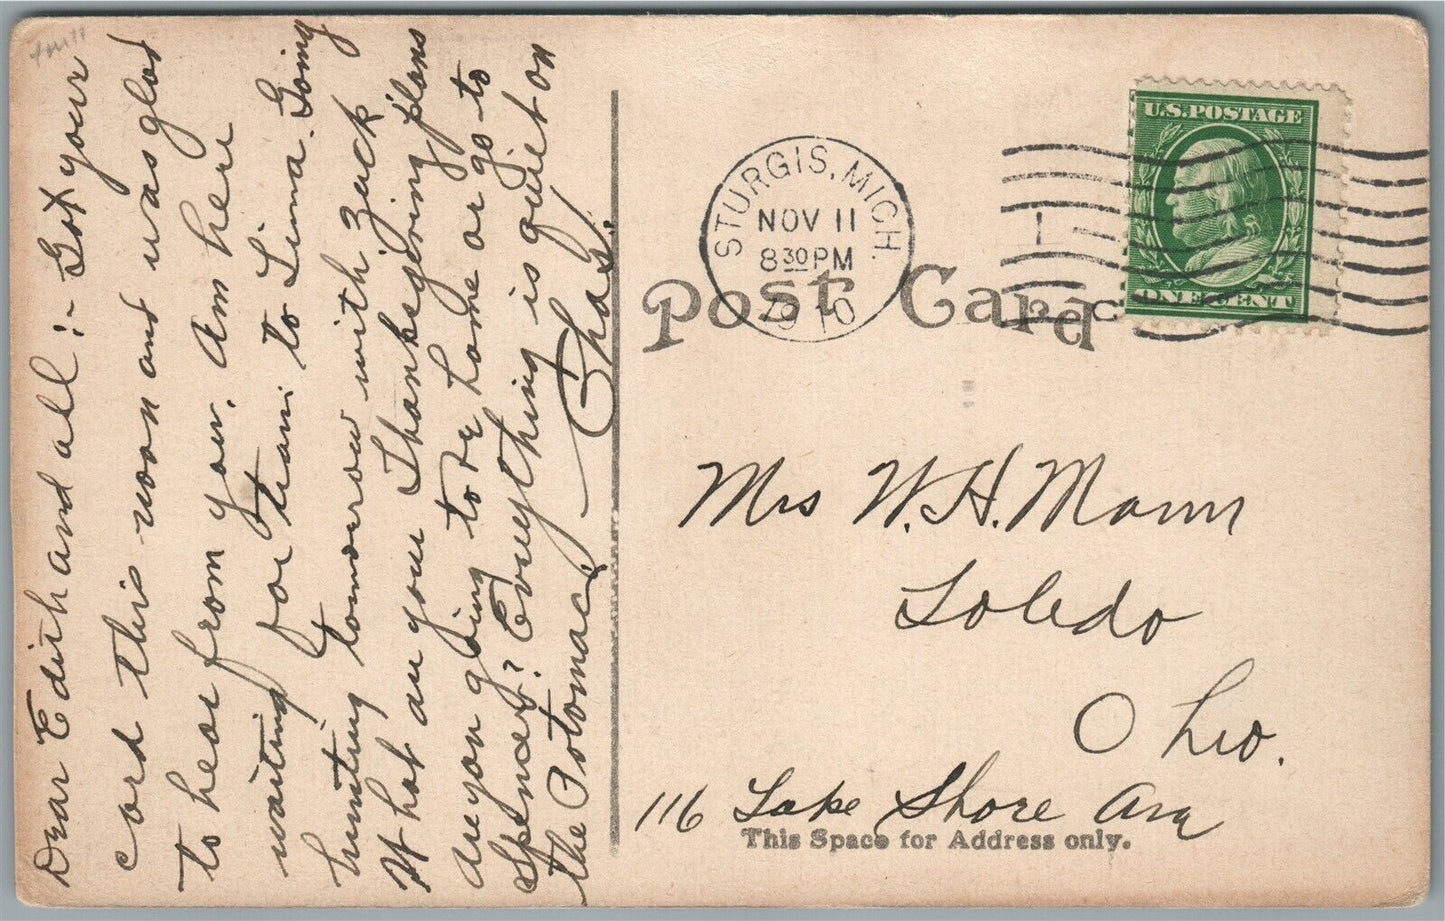 Dear Edith and all:- Got your
card this noon and was glad
to hear from you. Am here
waiting for train to Lima. Going
hunting tomorrow with Zuck
What are your Thanksgiving plans
Are you going to be home or go to
Spencer? Everything is quiet on
the Potomac.
Chas.
STURGIS, MICH.
NOV 11
8 30 PM
1910
U.S. POSTAGE
ONE CENT
Post Card
Mrs W. H. Mann
Toledo
Ohio.
116 Lake Shore Ave
This Space for Address only.